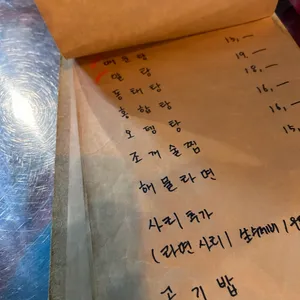 매운탕 18,—
알 탕 19,—
동태탕 18,—
홍합탕 16,—
오뎅탕 16,—
조개술찜 15,
해물라면
사리 추가
(라면 사리)
고기밥